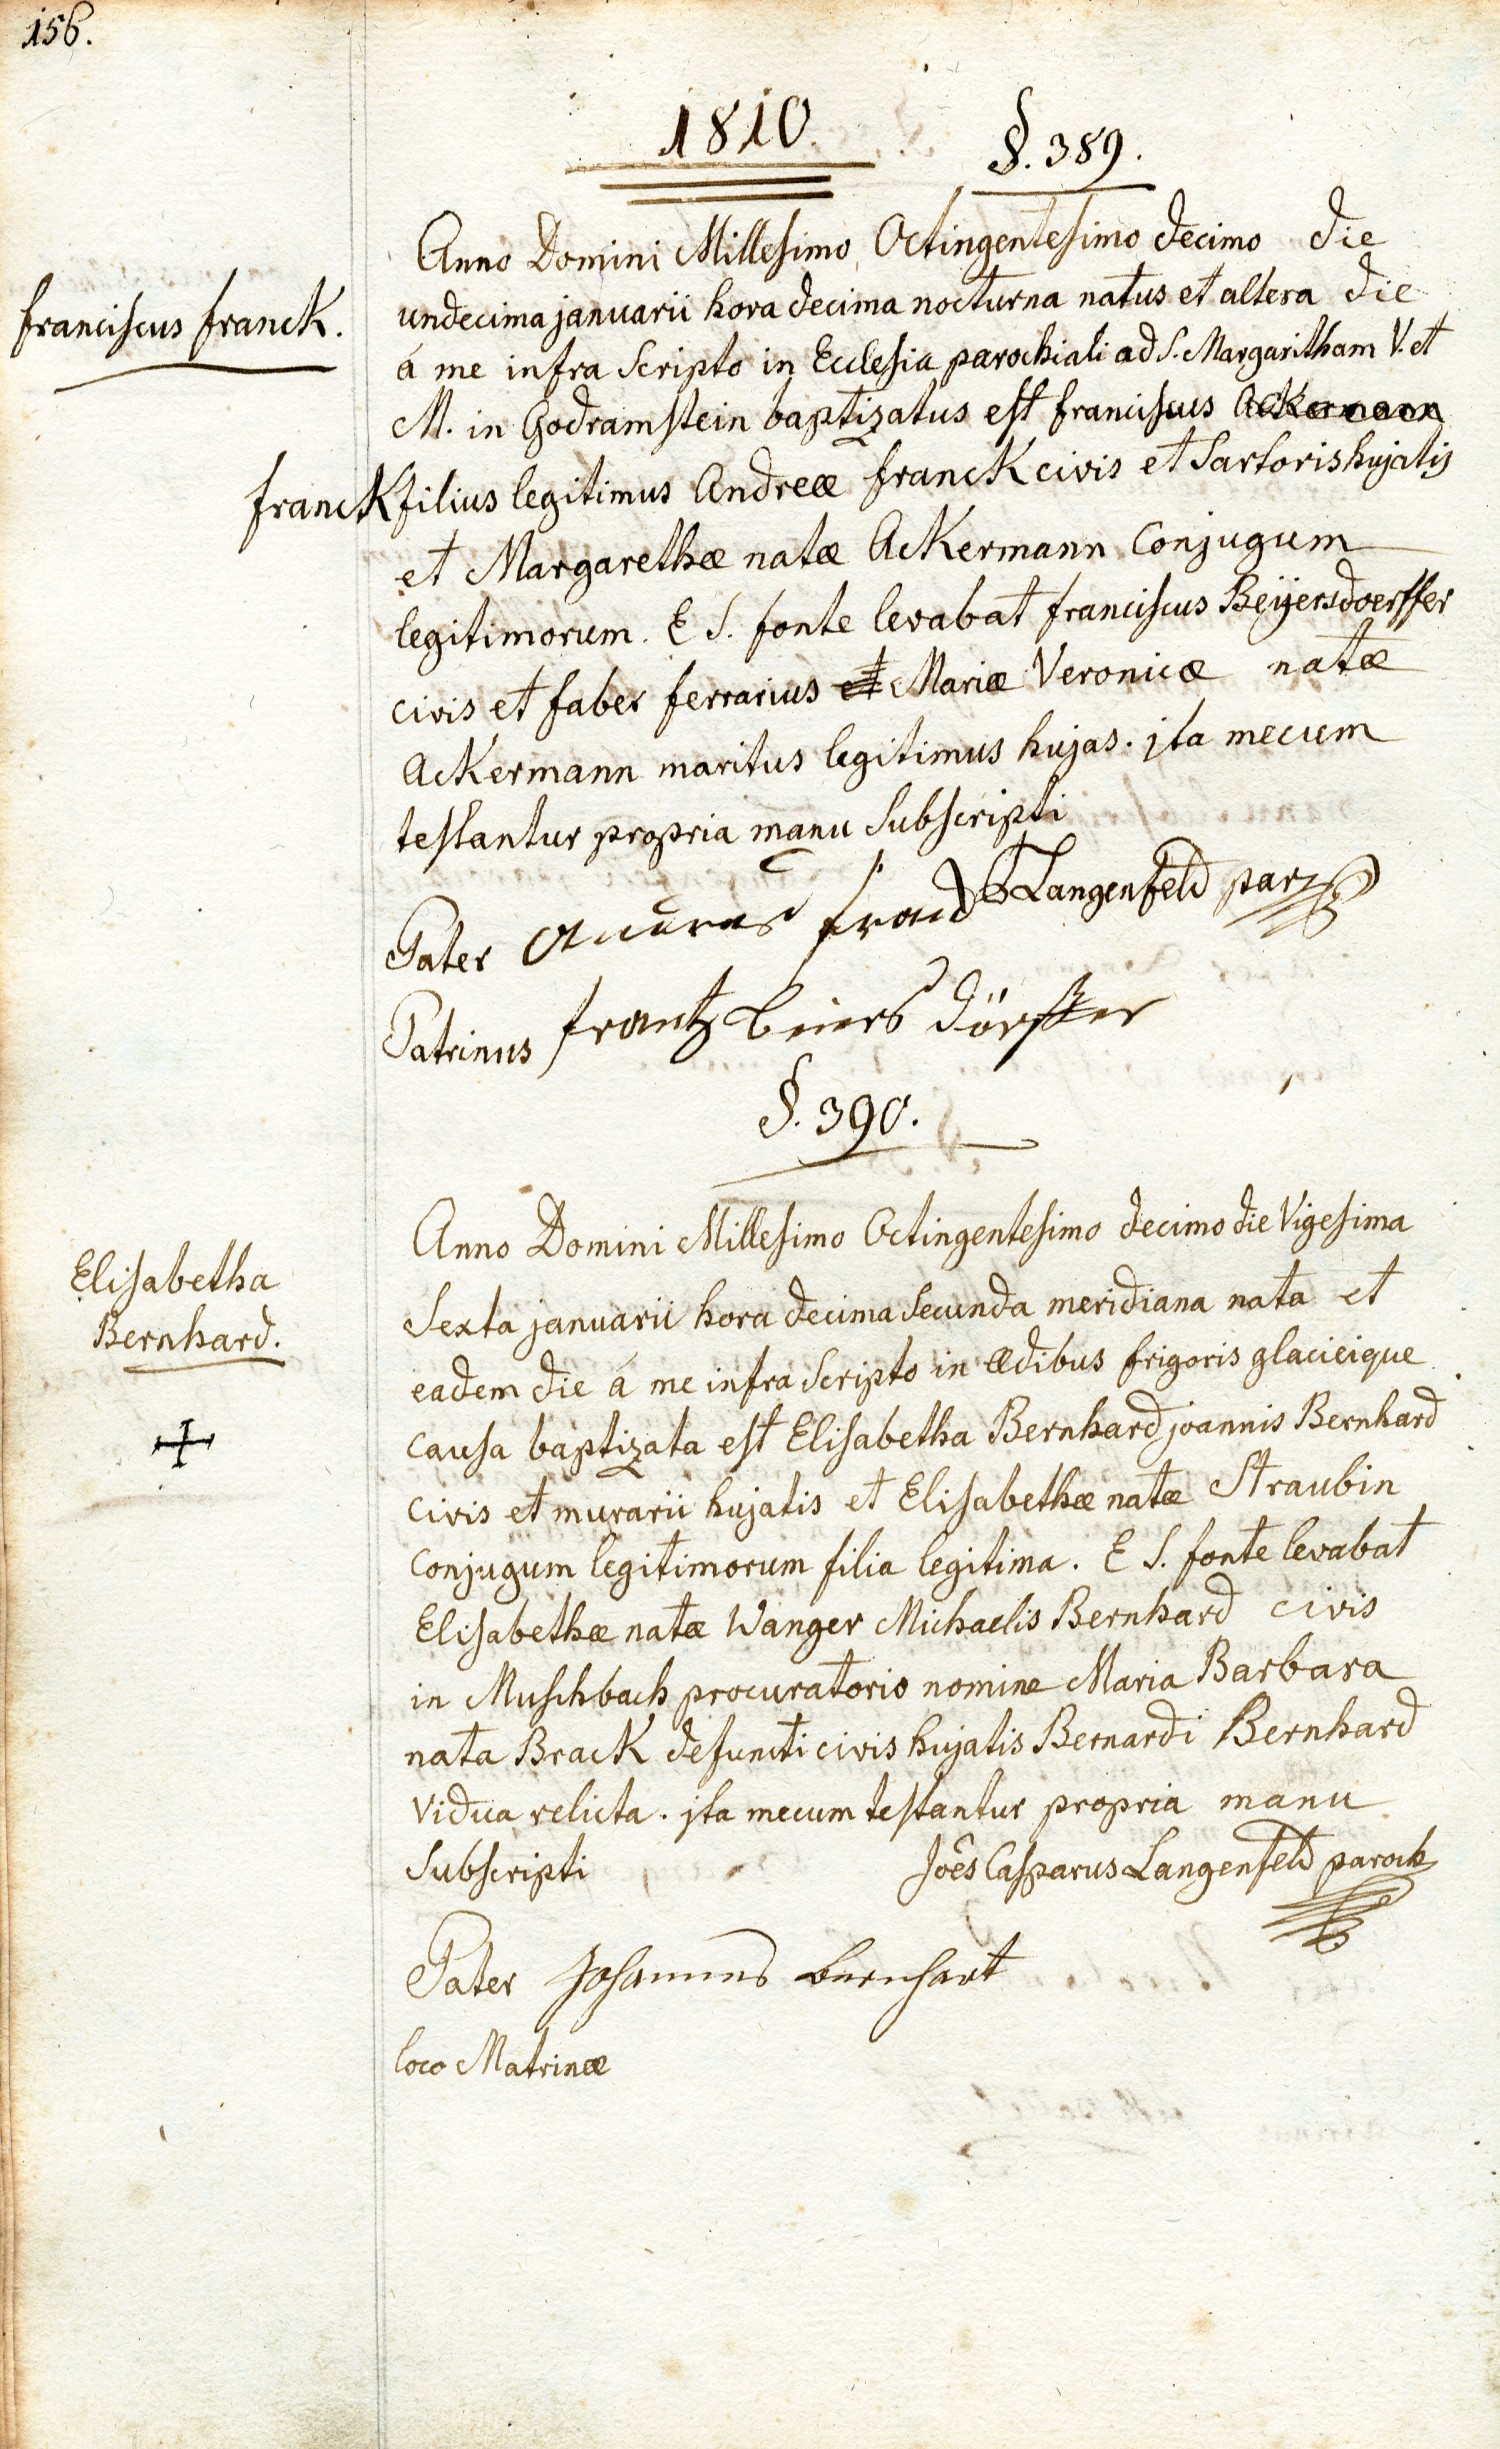 156.
1810.
§. 389.
Anno Domini Millesimo Octingentesimo decimo die
franciscus franck.
undecima januarii hora decima nocturna natus et altera die
á me infra Scripto in Ecclesia parochiali ad S. Margaritham V. et
M. in Godramstein baptizatus est franciscus Ackermann
franck filius legitimus Andreæ franck civis et Sartoris hujatis
et Margarethæ natæ Ackermann Conjugum
legitimorum. E S. fonte levabat franciscus Beÿersdoerffer
civis et faber ferrarius et Mariæ Veronicæ natæ
Ackermann maritus legitimus hujas. jta mecum
testantur propria manu Subscripti
Langenfeld par
Pater Andreas franck
Patrinus frantz beiers dörffer
§. 390.
Anno Domini Millesimo Octingentesimo decimo die Vigesima
Elisabetha
Bernhard.
Sexta januarii hora decima Secunda meridiana nata et
eadem die á me infra Scripto in ædibus frigoris glacieique
causa baptizata est Elisabetha Bernhard joannis Bernhard
civis et murarii hujatis et Elisabethæ natæ Straubin
Conjugum legitimorum filia legitima. E S. fonte levabat
Elisabethæ natæ Wanger Michaelis Bernhard civis
in Muschbach procuratorio nomine Maria Barbara
nata Brack defuncti civis hujatis Bernardi Bernhard
Vidua relicta. jta mecum testantur propria manu
Subscripti
Joês Casparus Langenfeld paroch
Pater Johannes bernhart
loco Matrinæ